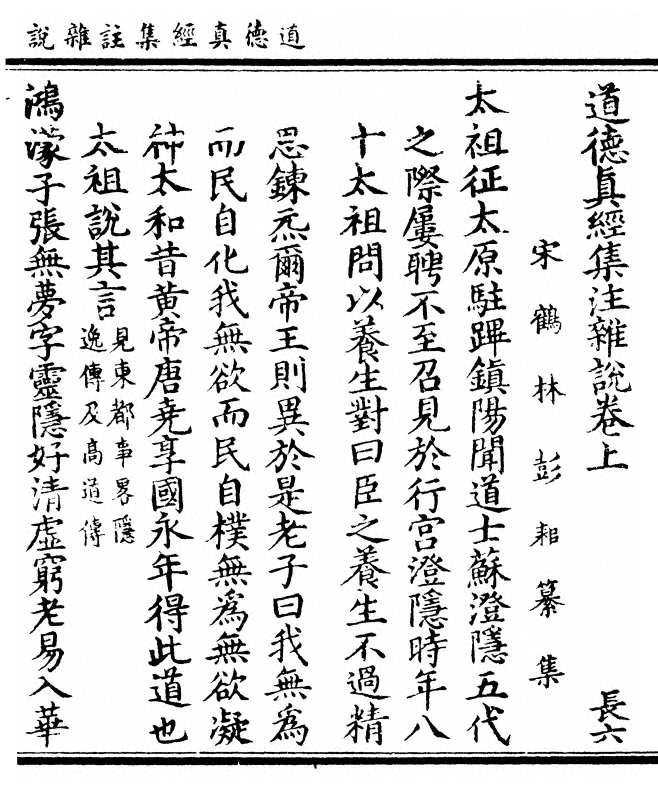 道德真經集註雜說
道德真經集注雜說卷上
長六
宋鶴林彭耜纂集
太祖征太原駐蹕鎮陽聞道士蘇澄隱五代
之際屢聘不至召見於行宮澄隱時年八
十太祖問以養生對曰臣之養生不過精
思鍊炁爾帝王則異於是老子曰我無為
而民自化我無欲而民自樸無為無欲凝
神太和昔黃帝唐堯享國永年得此道也
太祖說其言
見東都事畧隱
逸傳及高道傳
鴻濛子張無夢字靈隱好清虛窮老易入華